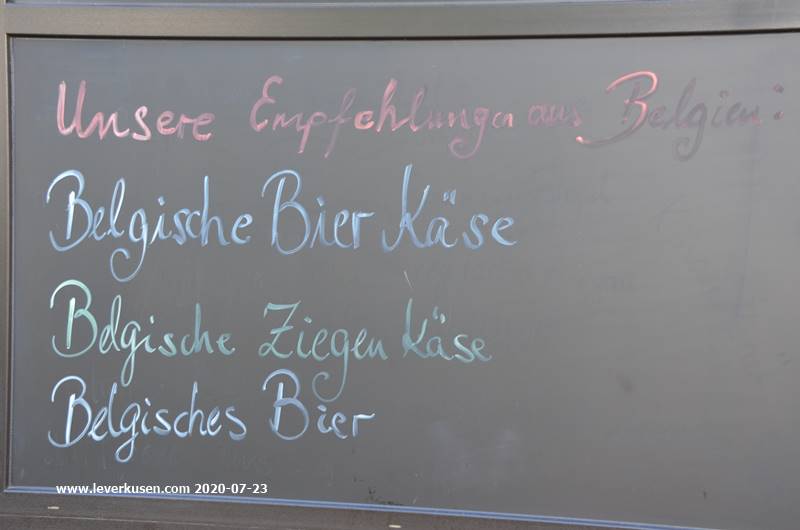 Unsere Empfehlungen aus Belgien:
Belgische Bier Käse
Belgische Ziegen Käse
Belgisches Bier
www.leverkusen.com 2020-07-23